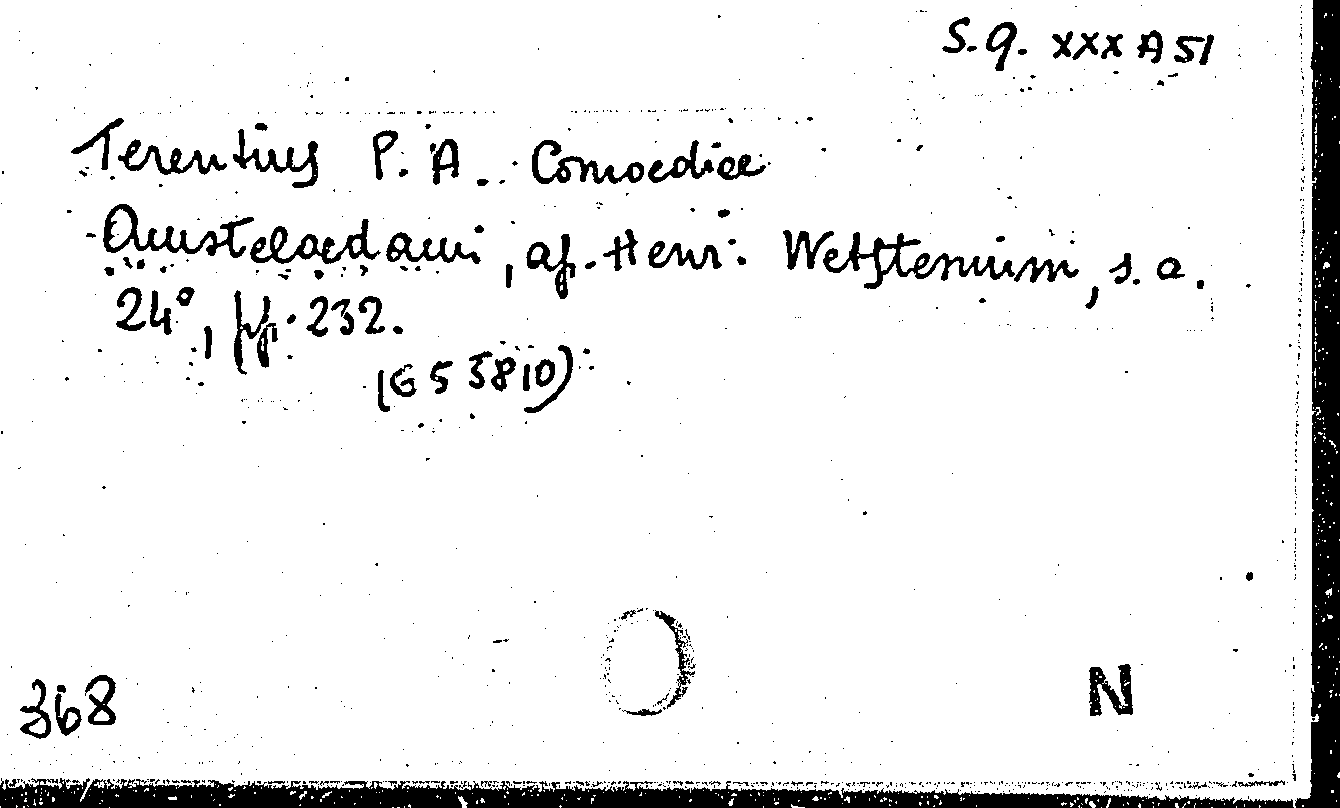 S.q. XXX A 51
Terentius P. A. Comoediae
Amstelaedami, ap. Henr. Wetstenium, s.a.
24°, pp. 232.
(G 5 5810)
368
N